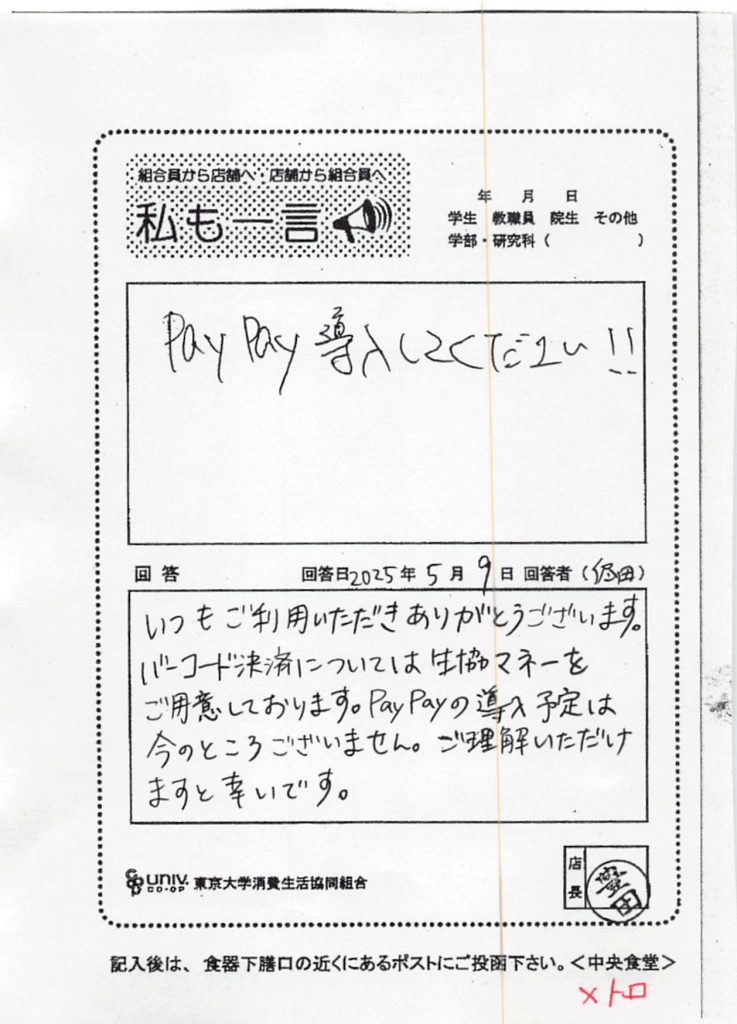 組合員から店舗へ・店舗から組合員へ
私も一言
年 月 日
学生 教職員 院生 その他
学部・研究科( )
PayPay 導入してください!!
回答 回答日2025年5月9日 回答者( 田)
いつもご利用いただきありがとうございます。
バーコード決済については生協マネーを
ご用意しております。PayPayの導入予定は
今のところございません。ご理解いただけ
ますと幸いです。
店長
豊田
UNIV. CO-OP 東京大学消費生活協同組合
記入後は、食器下膳口の近くにあるポストにご投函下さい。<中央食堂>
メトロ